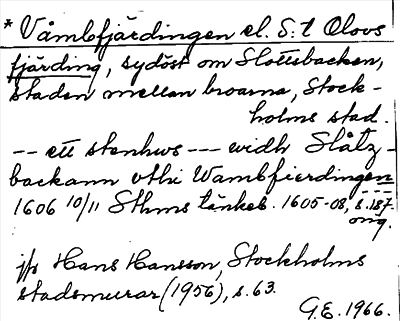 * Våmbfjärdingen el. S:t Olovs
fjärding, sydöst om Slottsbacken,
staden mellan broarna, Stock-
holms stad.
-- ett stenhws --- widh Slåtz-
backann vthi Wambfierdingen
1606 10/11 Sthms tänkeb. 1605-08, s. 187.
orig.
jfr Hans Hansson, Stockholms
stadsmurar (1956), s. 63.
G.E. 1966.